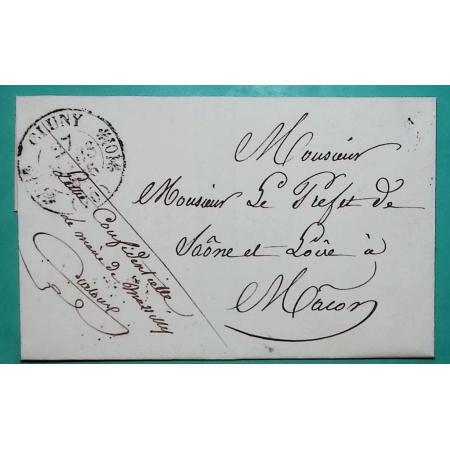 CLUNY
7
Lettre Confidentielle
Le maire de
Monsieur
Monsieur Le Préfet de
Saône et Loire à
Mâcon